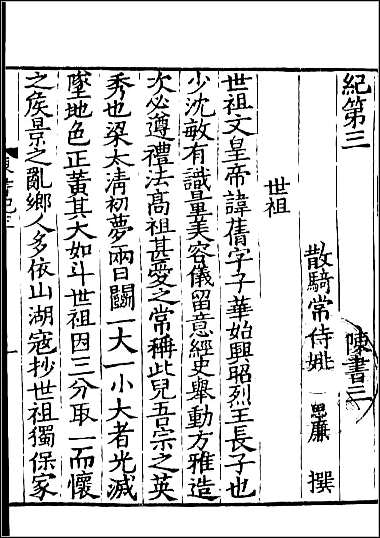 紀第三 陳書三
散騎常侍姚 思廉 撰
世祖
世祖文皇帝諱蒨字子華始興昭烈王長子也
少沈敏有識量美容儀留意經史舉動方雅造
次必遵禮法髙祖甚愛之常稱此兒吾宗之英
秀也梁太清初夢兩日鬭一大一小大者光滅
墜地色正黃其大如斗世祖因三分取一而懷
之侯景之亂鄉人多依山湖寇抄世祖獨保家